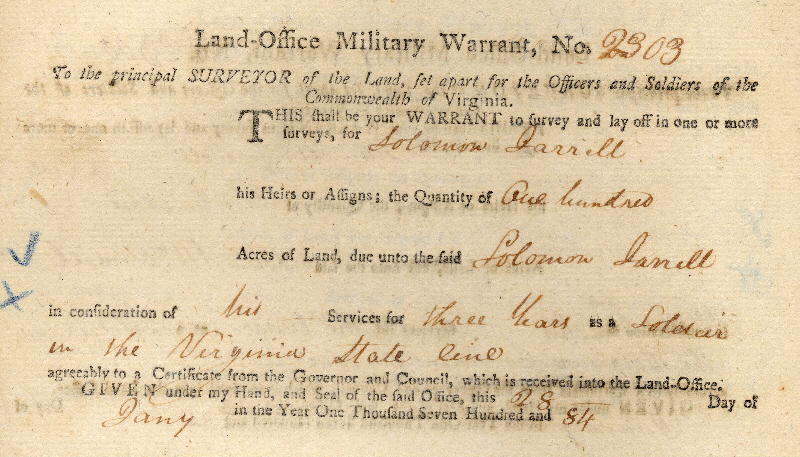 Land-Office Military Warrant, No. 2303
To the principal SURVEYOR of the Land, ſet apart for the Officers and Soldiers of the
Commonwealth of Virginia.
THIS ſhall be your WARRANT to ſurvey and lay off in one or more
ſurveys, for Solomon Jarrell
his Heirs or Aſſigns; the Quantity of One hundred
Acres of Land, due unto the ſaid Solomon Jarrell
in conſideration of his Services for three Years as a Soldier
in the Virginia State line
agreeably to a Certificate from the Governor and Council, which is received into the Land-Office.
GIVEN under my Hand, and Seal of the ſaid Office, this 28 Day of
Jany in the Year One Thouſand Seven Hundred and 84